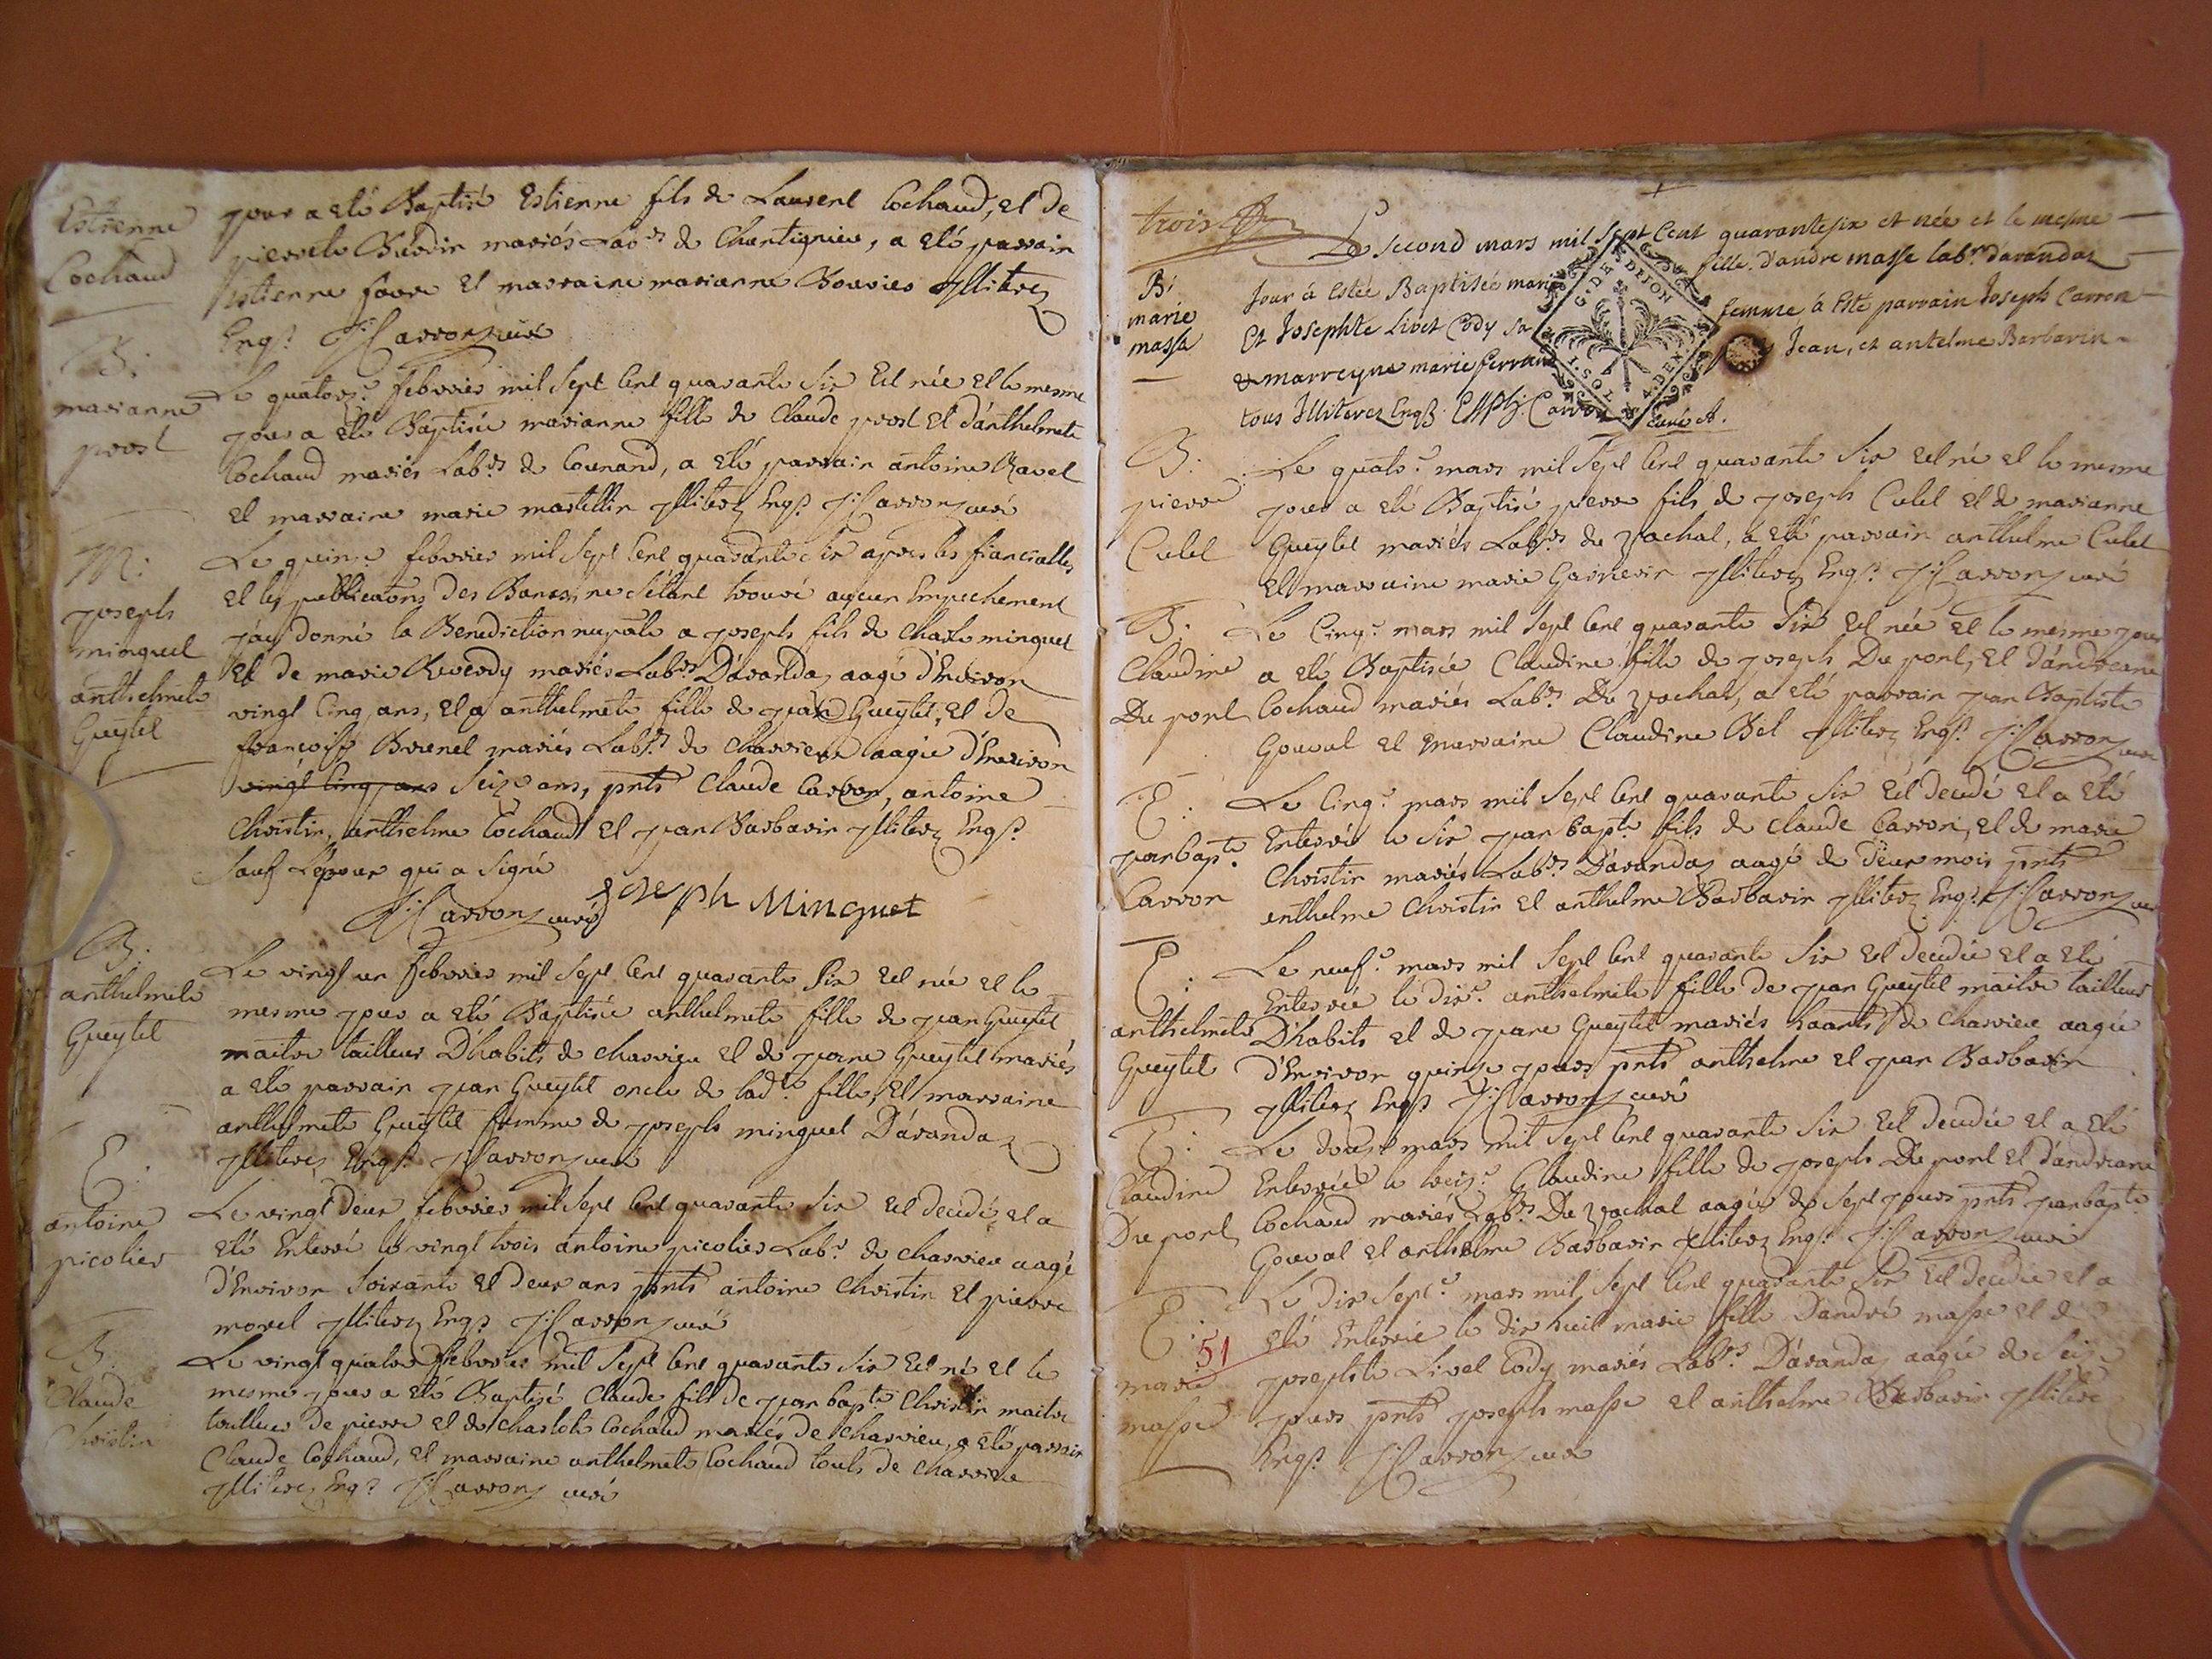 Estienne
Cochaud
jour a eté Baptisé Estienne fils de Laurent Cochaud, et de
pierrete Burdin mariés Lab.rs de Chantignieu, a eté parrain
Estienne favre et marraine marianne Bouvier Illiterez
Enq.s J: Carron curé
B:
marianne
prost
Le quatorz.e febvrier mil sept Cent quarante Six Est née et le mesme
jour a eté Baptisée marianne fille de Claude prost et d'anthelmete
Cochaud mariés Lab.rs de Counand, a eté parrain antoine Ravet
et marraine marie martellin Illiterez Enq.s J: Carron curé
M:
joseph
minguet
anthelmete
Gueytet
Le quinz.e febvrier mil sept Cent quarante Six apres les fiancailles
et les publications des Bans, ne s'étant trouvé aucun Empechement
j'ay donné la Benediction nuptiale a joseph fils de Charle minguet
et de marie Reverdy mariés Lab.rs D'arandaz aagé d'Environ
vingt Cinq ans, et a anthelmete fille de jean Gueytet, et de
francoise Brunet mariés Lab.rs de Charvieu aagée d'Environ
vingt Cinq ans Seize ans, pnts Claude Carron, antoine
Christin, anthelme Cochaud et jean Barbarin Illiterez Enq.s
Sauf L'epoux qui a Signé
J: Carron curé Joseph Minguet
B:
anthelmete
Gueytet
Le vingt un febvrier mil sept Cent quarante Six est née et le
mesme jour a eté Baptisée anthelmete fille de jean Gueytet
maitre tailleur D'habits de charvieu et de jeane Gueytet mariés
a eté parrain jean Gueytet oncle de lad.te fille, et marraine
anthelmete Gueytet femme de joseph minguet D'arandaz
Illiterez Enq.s J: Carron curé
E:
antoine
picolier
Le vingt deux febvrier mil sept Cent quarante Six est decedé, et a
eté Enterré le vingt trois antoine picolier Lab.r de charvieu aagé
d'Environ Soixante et deux ans pnts antoine Christin et pierre
morel Illiterez Enq.s J: Carron curé
B:
Claude
Christin
Le vingt quatre febvrier mil sept Cent quarante Six Est né et le
mesme jour a eté Baptisé Claude fils de jean bapt.e Christin maitre
tailleur de pierre et de charlote Cochaud mariés de Charvieu, a eté parrain
Claude Cochaud, et marraine anthelmete Cochaud touts de charvieu
Illiterez Enq.s J: Carron curé
trois
B:
marie
massa
Le second mars mil sept Cent quarantesix et née et le mesme
Jour à Estée Baptisée marie fille d'andre masse lab.r d'arandaz
Et Josephte Livet Cody sa femme à Esté parrain Joseph Carron
& marreyne marie ferrand Jean, et antelme Barbarin
tous Illiterez Enqs. Carron curé
G. DE DIJON
I. SOL 4. DEN
B:
pierre
Culet
Le quatr.e mars mil Sept Cent quarante Six est né et le mesme
jour a eté Baptisé pierre fils de joseph Culet et de marianne
Gueytet mariés Lab.rs du vachat, a eté parrain anthelme Culet
et marraine marie Garnerin Illiterez Enq.s J: Carron curé
B:
Claudine
Du pont
Le Cinq.e mars mil sept Cent quarante Six est née et le mesme jour
a eté Baptisée Claudine fille de joseph Du pont, et d'andreane
Cochaud mariés Lab.rs Du vachat, a eté parrain jean Baptiste
Gouval et marraine Claudine Bel Illiterez Enq.s J: Carron curé
E:
jean bapt.e
Carron
Le Cinq.e mars mil sept Cent quarante Six Est decedé et a eté
Enterré le Six jean bapt.e fils de claude Carron, et de marie
Christin mariés Lab.rs D'arandaz aagé de deux mois pnts
anthelme Christin et anthelme Barbarin Illiterez Enq.s J: Carron curé
E:
anthelmete
Gueytet
Le neuf.e mars mil Sept Cent quarante Six est decedée et a eté
Enterrée le dix.e anthelmete fille de jean Gueytet maitre tailleur
D'habits et de jeane Gueytet mariés haants de Charvieu aagée
d'Environ quinze jours pnts anthelme et jean Barbarin
Illiterez Enqs J: Carron curé
E:
Claudine
Du pont
Le douz.e mars mil Sept Cent quarante Six Est decedée et a eté
Enterrée le treiz.e Claudine fille de joseph Du pont et d'andreane
Cochaud mariés Lab.rs Du vachat aagée de Sept jours pnts jean bapt.e
Gouval et anthelme Barbarin Illiterez Enq.s J: Carron curé
E:
51
marie
masse
Le dix Sept.e mars mil Sept Cent quarante Six Est decedée et a
eté Enterrée le dix huit marie fille D'andré masse et de
josephte Livet Cody mariés Lab.rs D'arandaz aagée de Seize
jours pnts joseph masse et anthelme Barbarin Illiterez
Enq.s J: Carron curé